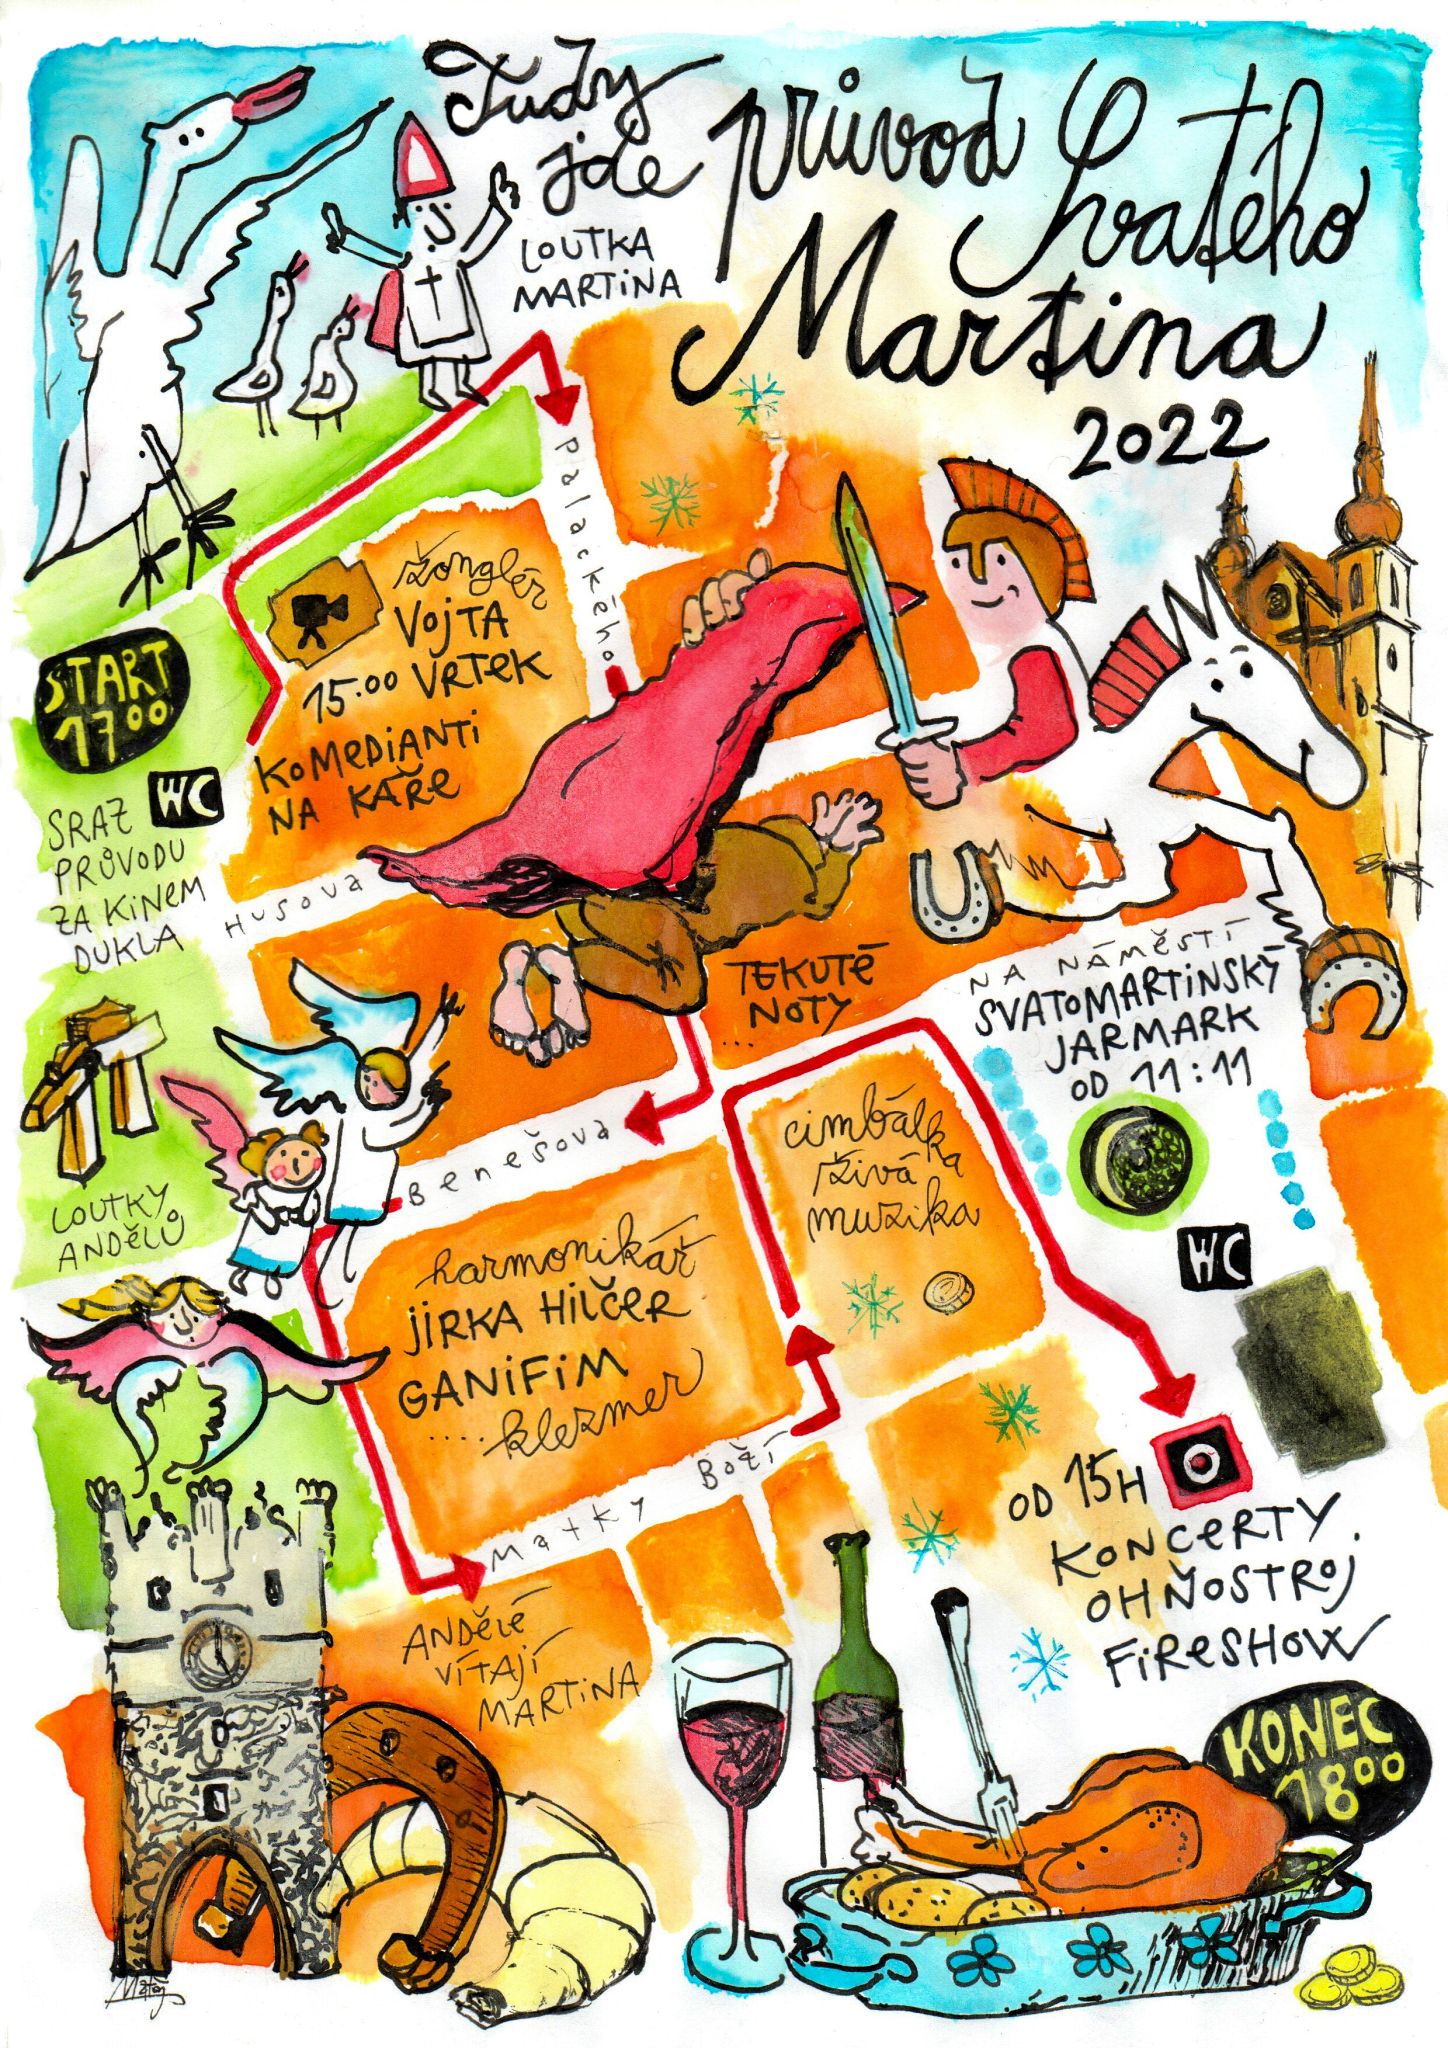 Tudy
jde
průvod
Svatého
Martina
2022
LOUTKA
MARTINA
Palackého
žonglér
VOJTA
15.00 VRTEK
KOMEDIANTI
NA KÁŘE
START
17⁰⁰
WC
SRAZ
PRŮVODU
ZA KINEM
DUKLA
Husova
TEKUTÉ
NOTY
...
NA NÁMĚSTÍ
SVATOMARTINSKÝ
JARMARK
OD 11:11
LOUTKY
ANDĚLŮ
Benešova
cimbálka
živá
muzika
WC
harmonikář
JIRKA HILČER
GANIFIM
.... klezmer
Matky Boží
ANDĚLÉ
VÍTAJÍ
MARTINA
OD 15H
KONCERTY
OHŇOSTROJ
FIRESHOW
KONEC
18⁰⁰
Matěj